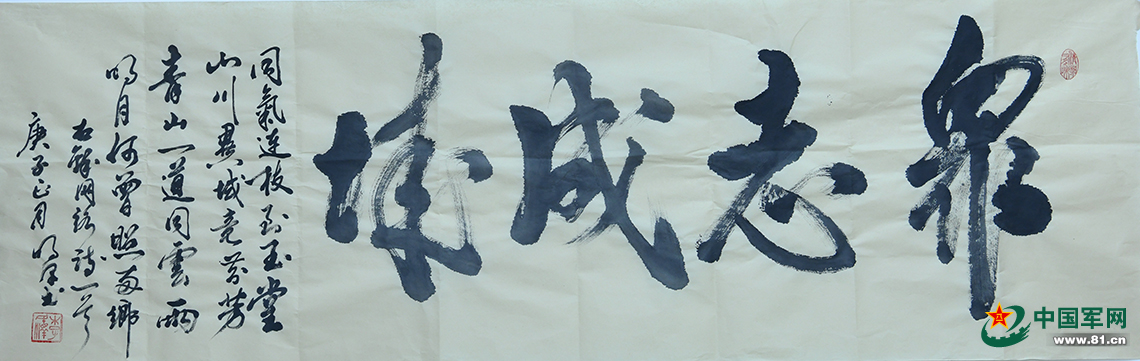 眾志成城
同氣連枝到玉堂
山川異域竞芬芳
青山一道同雲雨
明月何曾照两鄉
右錄網絡詩一首
庚子正月明泽书
中国军网
www.81.cn